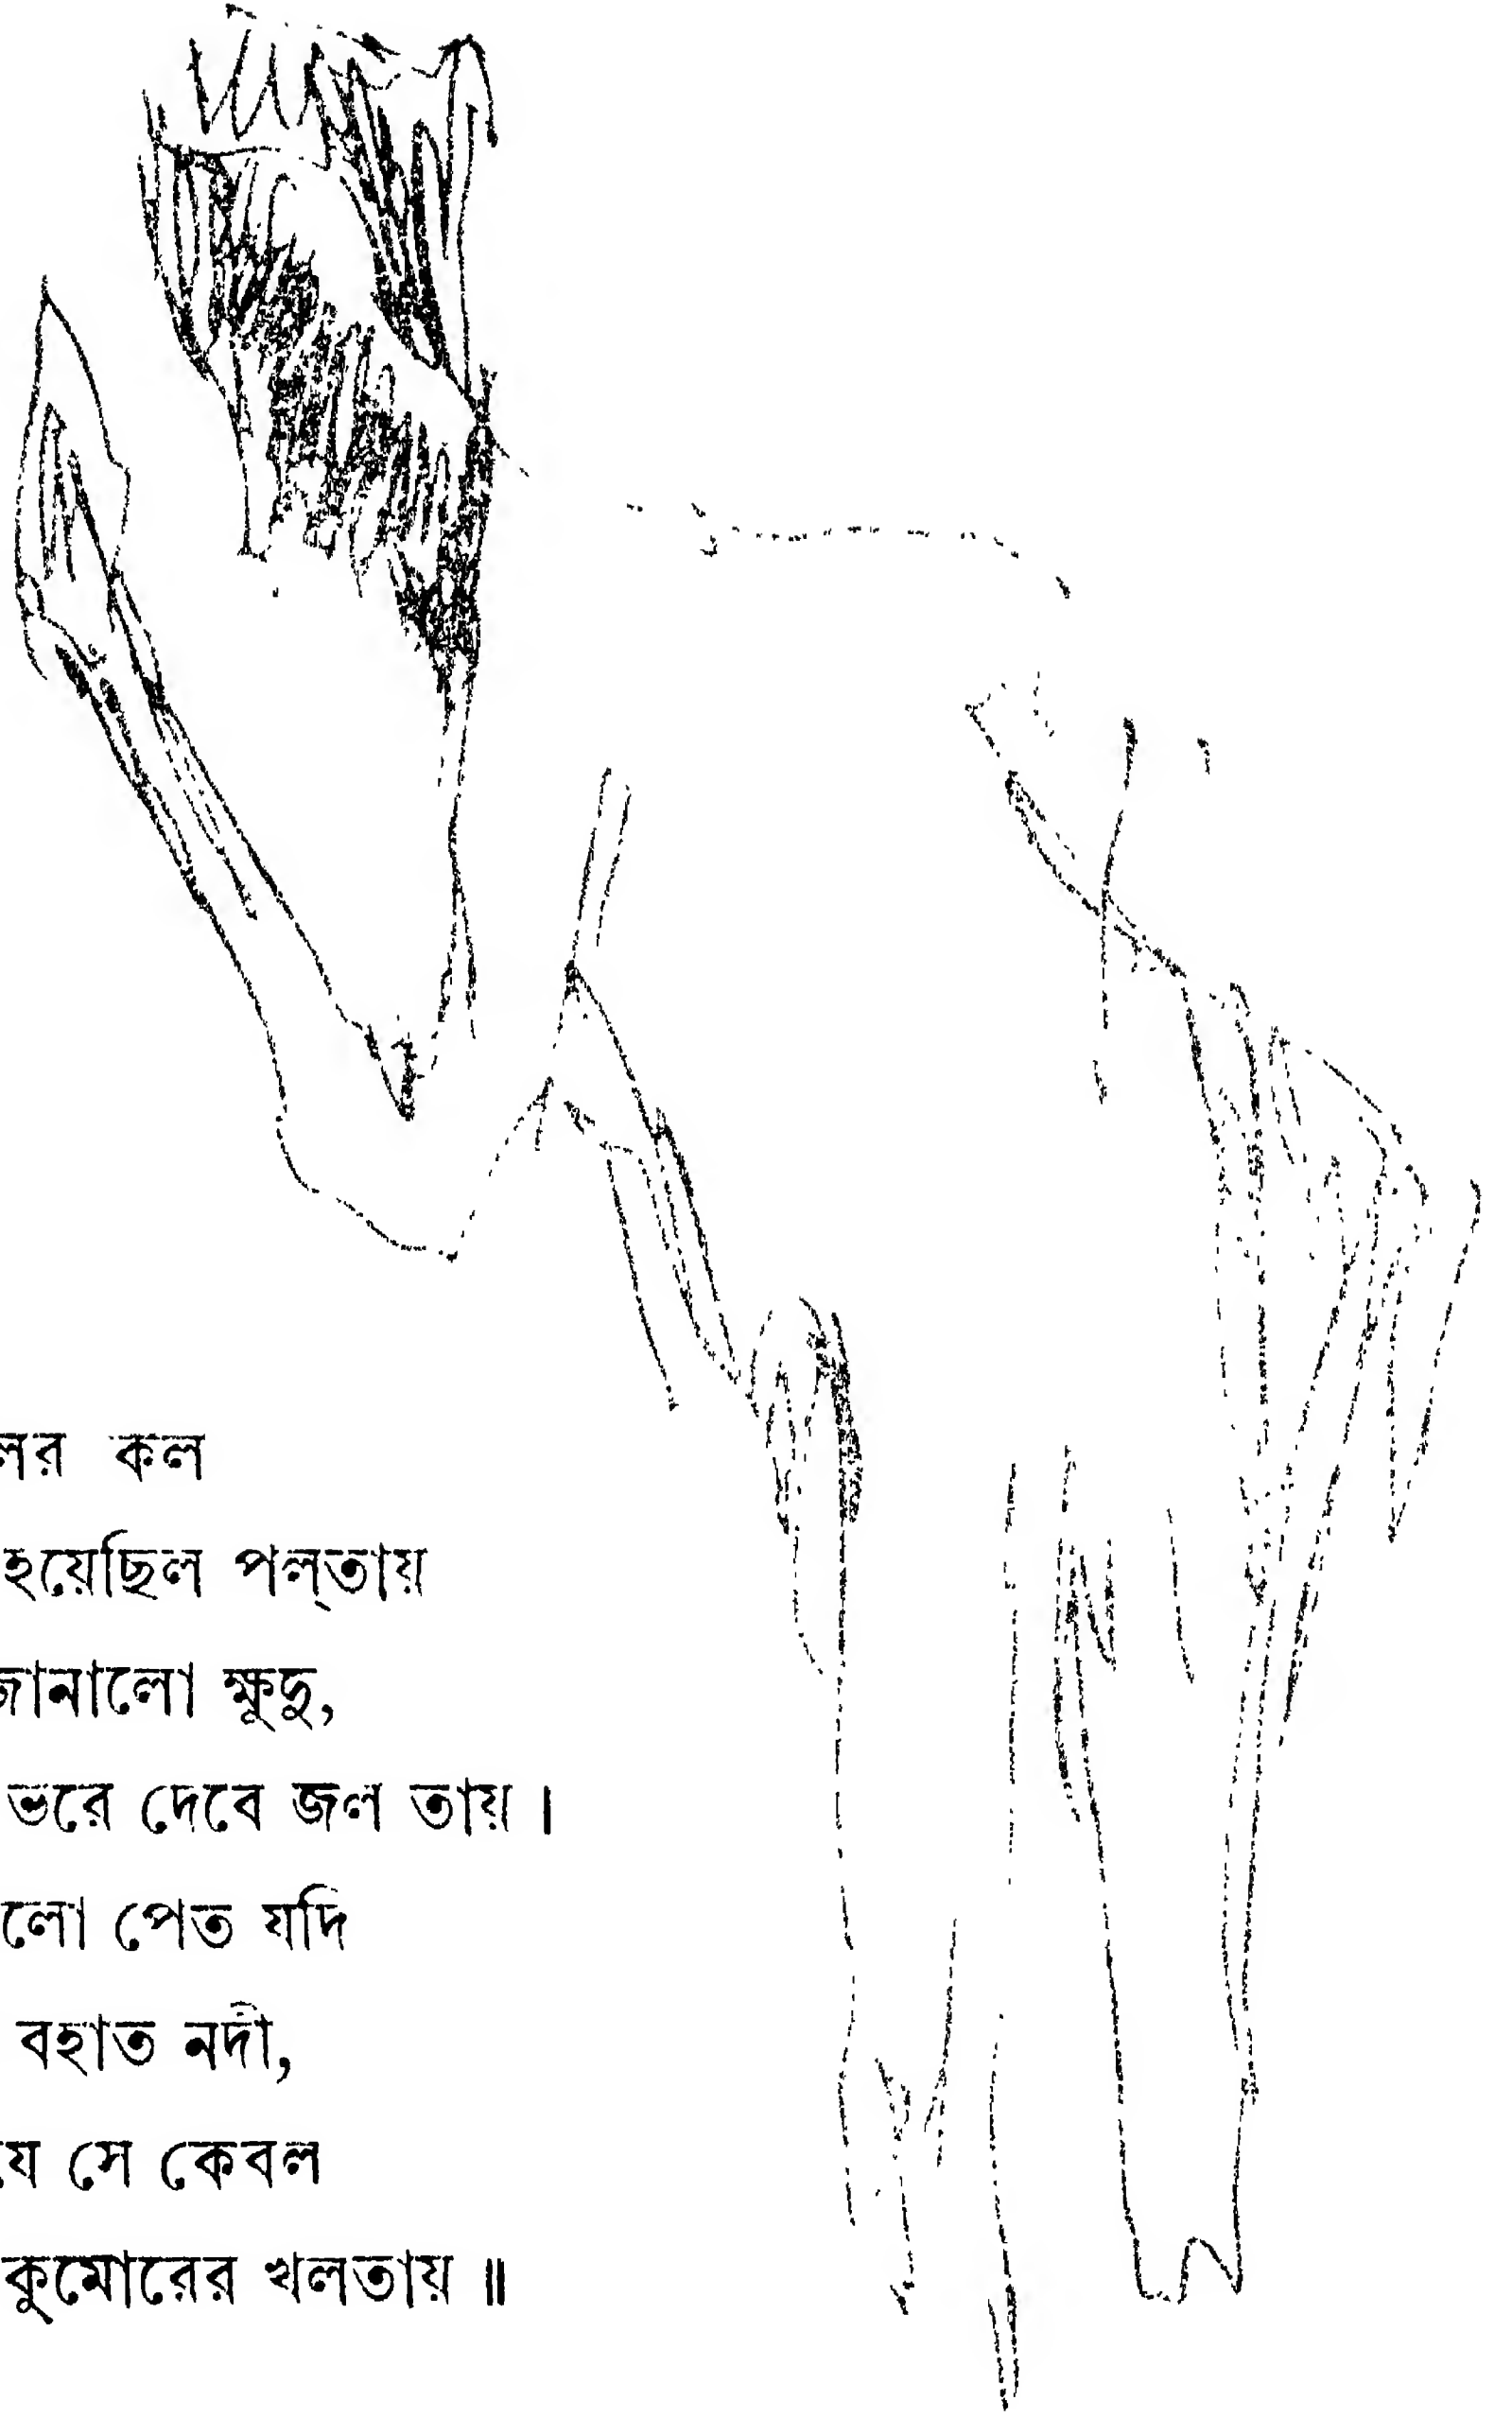 লর কল
হয়েছিল পল্‌তায়
জানালো ক্ষুদু,
ভরে দেবে জল তায়।
লো পেত যদি
বহাত নদী,
যে সে কেবল
কুমোরের খলতায়॥